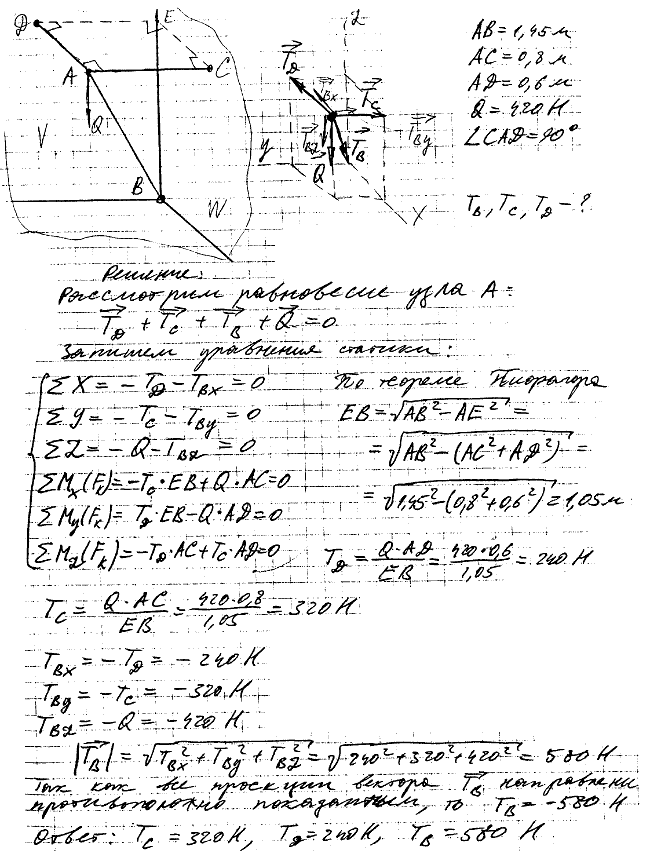 D
E
A
C
Q
V
B
W
Z
T_D
T_Bx
T_C
T_BZ
T_B
T_By
Q
У
X
AB=1,45 м
AC=0,8 м
AD=0,6 м
Q=420 Н
∠CAD=90°
T_B, T_C, T_D - ?
Решение:
Рассмотрим равновесие узла A:
T_D + T_C + T_B + Q = 0
Запишем уравнения статики:
ΣX = -T_D - T_Bx = 0
ΣY = -T_C - T_By = 0
ΣZ = -Q - T_BZ = 0
ΣM_x(F_k) = -T_C·EB + Q·AC = 0
ΣM_y(F_k) = T_D·EB - Q·AD = 0
ΣM_Z(F_k) = -T_D·AC + T_C·AD = 0
По теореме Пифагора
EB = √(AB² - AE²) =
= √(AB² - (AC² + AD²)) =
= √(1,45² - (0,8² + 0,6²)) = 1,05 м
T_D = Q·AD/EB = 420·0,6/1,05 = 240 Н
T_C = Q·AC/EB = 420·0,8/1,05 = 320 Н
T_Bx = -T_D = -240 Н
T_By = -T_C = -320 Н
T_BZ = -Q = -420 Н
|T_B| = √(T_Bx² + T_By² + T_BZ²) = √(240² + 320² + 420²) = 580 Н
Так как все проекции вектора T_B направлены
противоположно показанным, то T_B = -580 Н
Ответ: T_C = 320 Н, T_D = 240 Н, T_B = 580 Н